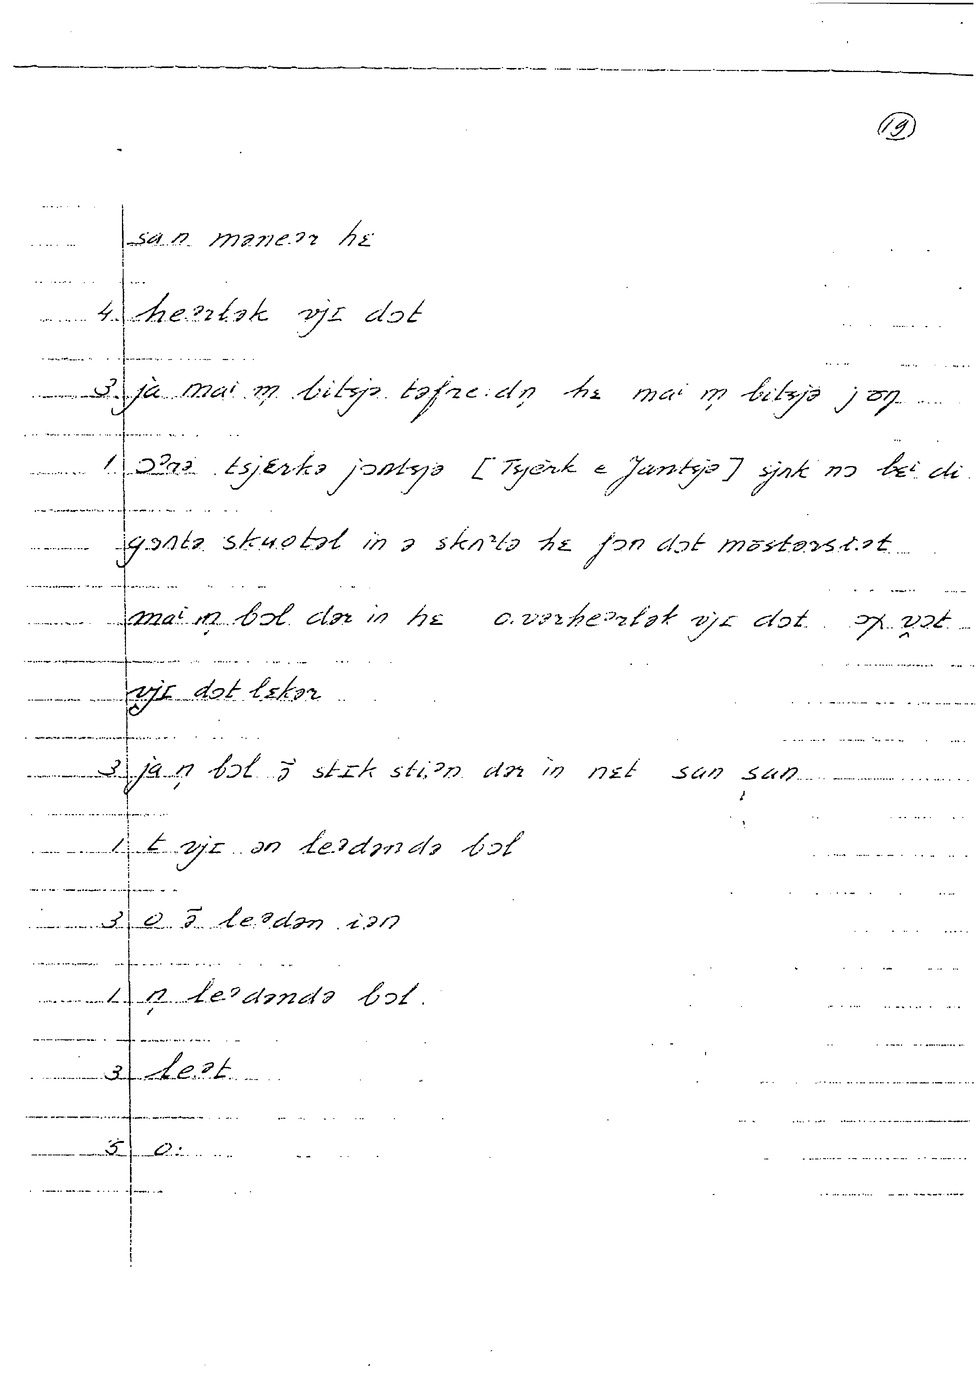 19
san məneər hɛ
4 heərlək vjɪ dɔt
3 ja mai m̩ bitsjə təfre:dn̩ hɛ mai m̩ bitsjə jən
1 ɔərə tsjɛrkə jɔntsjə [Tsjèrk e Jantsje] sjnk nɔ bɛi di
gɔntə skuotəl in ə sknltə hɛ fɔn dɔt mɔstərsi:ət
mai n̩ bɔl dər in hɛ o.vərheərlək vjɪ dɔt ɔx vɔt
vjɪ dɔt lɛkər
3 ja n̩ bɔl ə̄ stɪk sti:ən dər in nɛt san san
1 t vjɪ ən leədəndə bɔl
3 o ə̄ leədən iən
1 n̩ leədəndə bɔl.
3 leət
5 o: